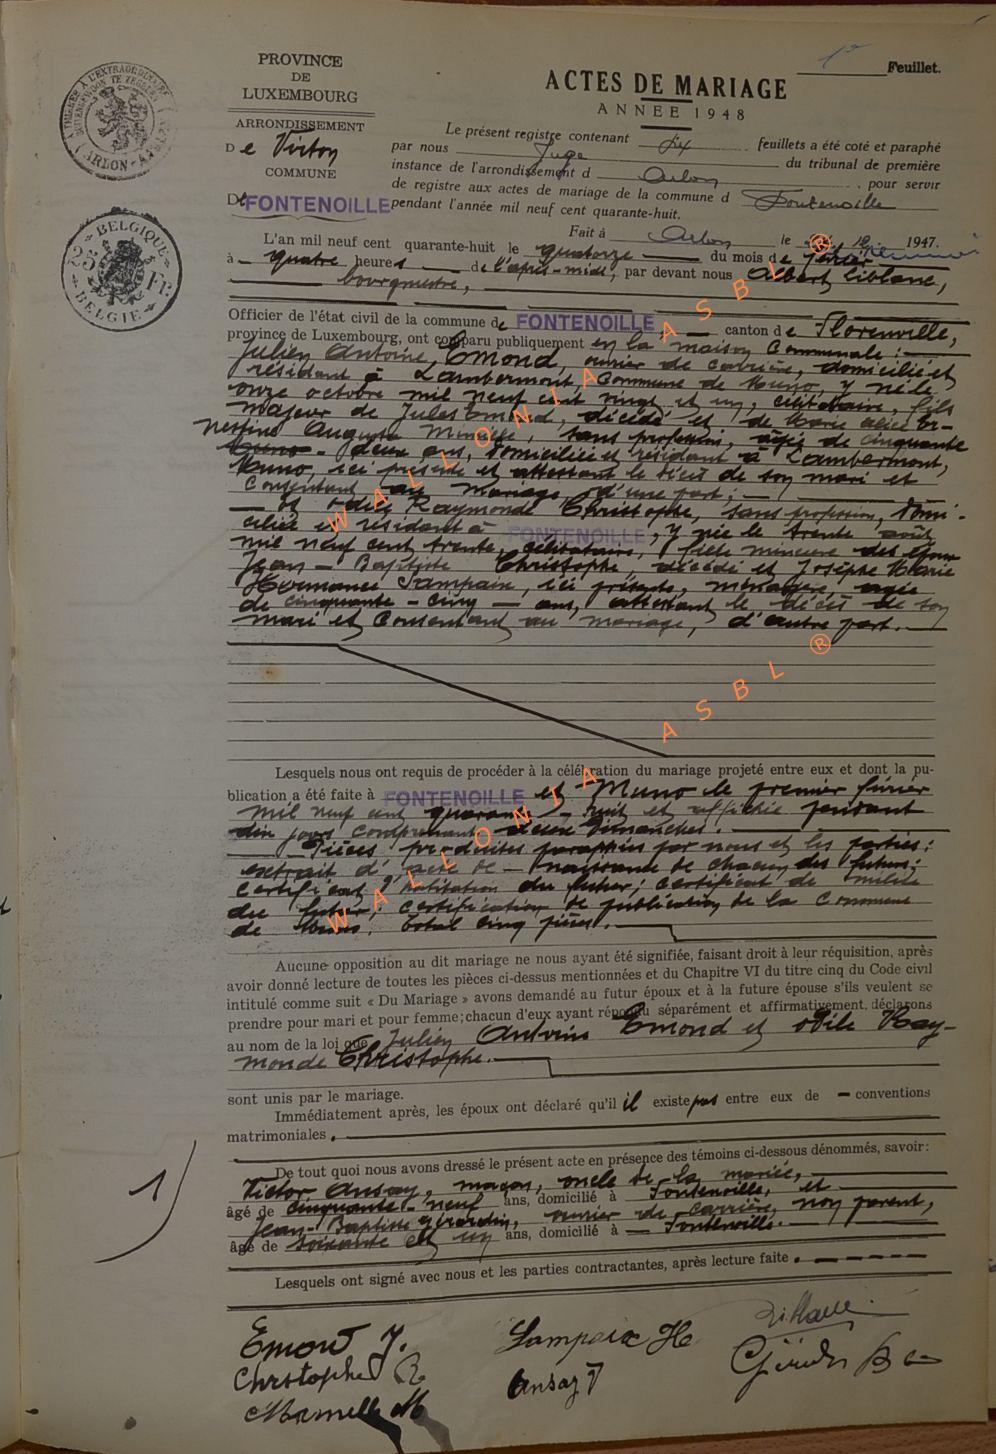 1er Feuillet.
PROVINCE
DE
LUXEMBOURG
ARRONDISSEMENT
De Virton
COMMUNE
De FONTENOILLE
ACTES DE MARIAGE
ANNEE 1948
Le présent registre contenant dix feuillets a été coté et paraphé
par nous Juge du tribunal de première
instance de l'arrondissement d Arlon, pour servir
de registre aux actes de mariage de la commune d Fontenoille
pendant l'année mil neuf cent quarante-huit.
Fait à Arlon le 1947.
L'an mil neuf cent quarante-huit le quatorze du mois de février
à quatre heures de l'après-midi, par devant nous Albert Liblanc,
bourgmestre,
Officier de l'état civil de la commune de FONTENOILLE, canton de Florenville,
province de Luxembourg, ont comparu publiquement en la maison communale :
Julien Antoine Emond, ouvrier de carrière, domicilié et
résidant à Lambermont, commune de Muno, y né le
onze octobre mil neuf cent vingt et un, célibataire, fils
majeur de Jules Emond, décédé et de Marie Alice Er-
nestine Augusta , sans profession, âgée de cinquante
deux ans, domiciliée et résidant à Lambermont,
Muno, ici présente et attestant le décès de son mari et
consentant au mariage d'une part ;
Et Odile Raymonde Christophe, sans profession, domi-
ciliée et résidant à FONTENOILLE, y née le trente août
mil neuf cent trente, célibataire, fille mineure des époux
Jean-Baptiste Christophe, décédé et Josèphe Marie
Hermance Lampaix, ici présente, ménagère, âgée
de cinquante-cinq ans, attestant le décès de son
mari et consentant au mariage, d'autre part.
Lesquels nous ont requis de procéder à la célébration du mariage projeté entre eux et dont la pu-
blication a été faite à FONTENOILLE et Muno le premier février
mil neuf cent quarante-huit et affichée pendant
dix jours comprenant deux dimanches.
Pièces produites paraphées par nous et les parties :
extrait d'acte de naissance de chacun des futurs ;
certificat d'habitation du futur ; certificat de milice
du futur ; certification de publication de la commune
de Muno. Total cinq pièces.
Aucune opposition au dit mariage ne nous ayant été signifiée, faisant droit à leur réquisition, après
avoir donné lecture de toutes les pièces ci-dessus mentionnées et du Chapitre VI du titre cinq du Code civil
intitulé comme suit « Du Mariage » avons demandé au futur époux et à la future épouse s'ils veulent se
prendre pour mari et pour femme; chacun d'eux ayant répondu séparément et affirmativement, déclarons
au nom de la loi que Julien Antoine Emond et Odile Ray-
monde Christophe.
sont unis par le mariage.
Immédiatement après, les époux ont déclaré qu'il il existe pas entre eux de conventions
matrimoniales.
De tout quoi nous avons dressé le présent acte en présence des témoins ci-dessous dénommés, savoir :
Victor Ansay, maçon, oncle de la mariée,
âgé de cinquante-neuf ans, domicilié à Fontenoille, et
Jean-Baptiste Gérardin, ouvrier de carrière, non parent,
âgé de soixante et un ans, domicilié à Fontenoille.
Lesquels ont signé avec nous et les parties contractantes, après lecture faite.
1
Emond J.
Lampaix H
Christophe R
Ansay V
WALLONIA ASBL ®
WALLONIA ASBL ®
BELGIQUE
25 Fr.
BELGIE